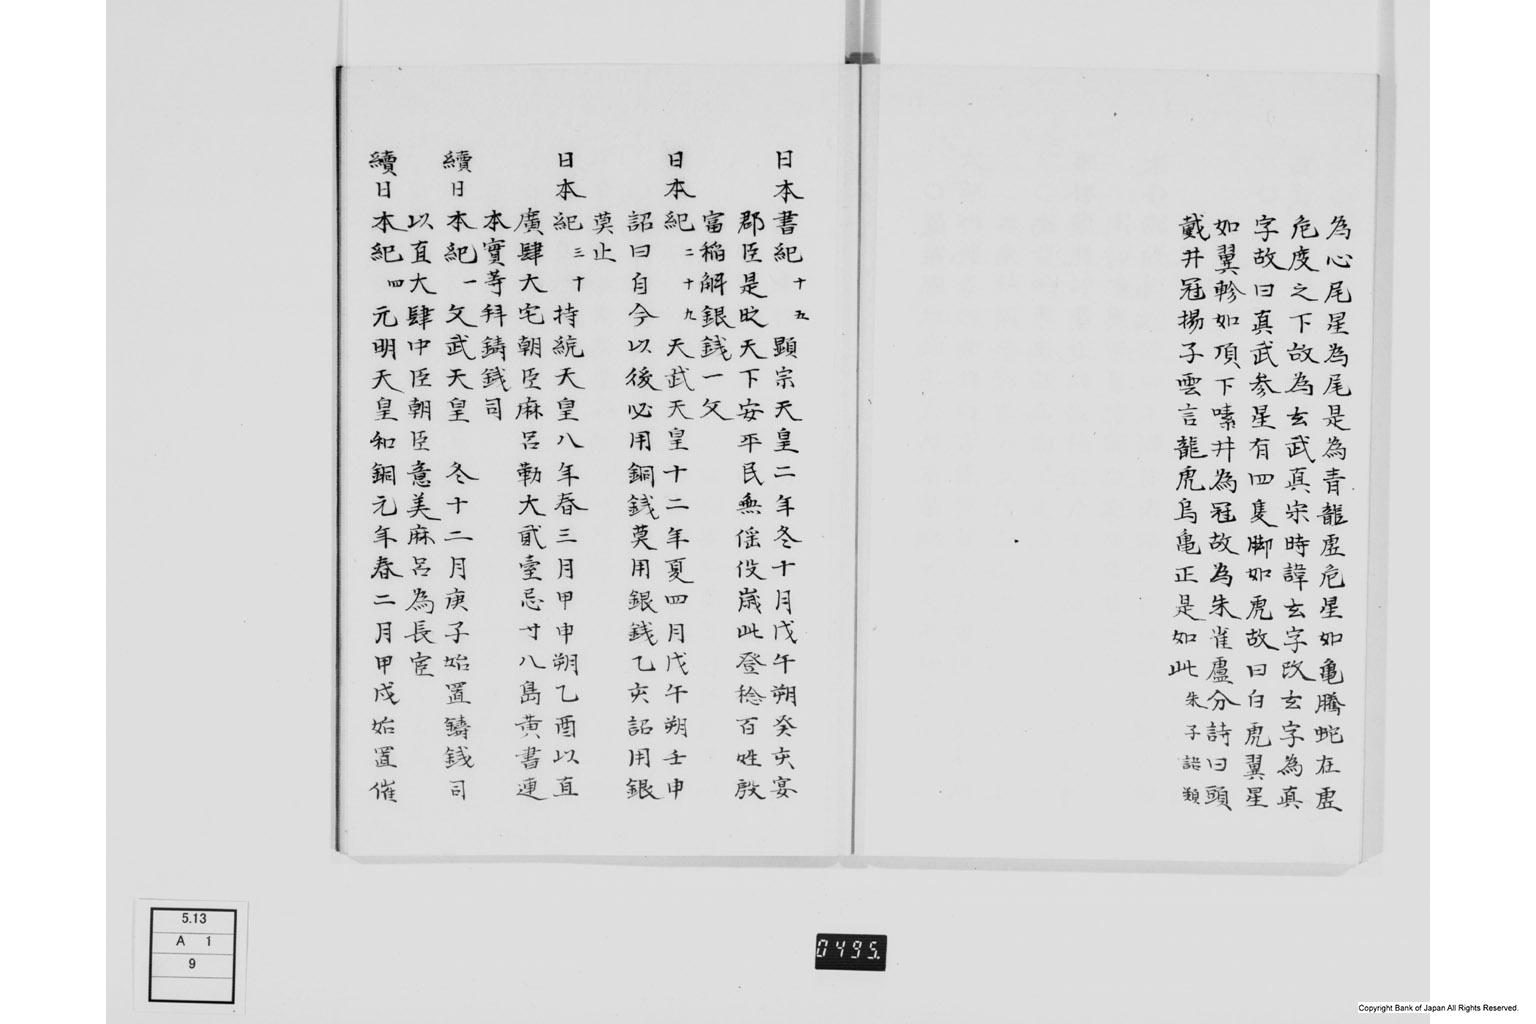 為心尾星為尾是為青龍虚危星如亀騰蛇在虚
危度之下故為玄武真宗時諱玄字改玄字為真
字故曰真武参星有四隻脚如虎故曰白虎翼星
如翼軫如項下嗉井為冠故為朱雀盧仝詩曰頭
戴井冠揚子雲言龍虎鳥亀正是如此 朱子語類
日本書紀 十五 顕宗天皇二年冬十月戊午朔癸亥宴
郡臣是時天下安平民無徭役歳比登稔百姓殷
富稲斛銀銭一文
日本紀 二十九 天武天皇十二年夏四月戊午朔壬申
詔曰自今以後必用銅銭莫用銀銭乙亥詔用銀
莫止
日本紀 三十 持統天皇八年春三月甲申朔乙酉以直
廣肆大宅朝臣麻呂勒大貳臺忌寸八島黄書連
本實等拜鑄銭司
續日本紀 一 文武天皇 冬十二月庚子始置鑄銭司
以直大肆中臣朝臣意美麻呂為長官
續日本紀 四 元明天皇和銅元年春二月甲戌始置催
5.13
A 1
9
0495.
Copyright Bank of Japan All Rights Reserved.